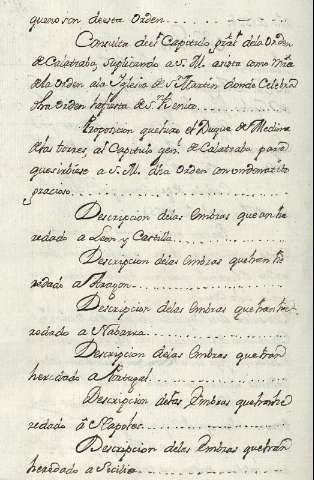 que no son de esta Orden
Consulta del Capitulo gral de la Orden
de Calatraba, Suplicando a S. M. asista como
de la Orden a la Iglesia de Sn Martin donde Celebra
dha Orden la fiesta de Sn Benito
Proposicion que hizo el Duque de Medina
de las torres, al Capitulo genl de Calatraba para
que sirbiese a S. M. dha Orden con un donatibo
gracioso
Descripcion de las Ombras que an he
redado a Leon y Castilla
Descripcion de las Ombras que han he
redado a Aragon
Descripcion de las Ombras que han he
redado a Nabarra
Descripcion de las Ombras que han
heredado a Portugal
Descripcion de las Ombras que han he
redado a Napoles
Descripcion de las Ombras que han
heredado a Secilia